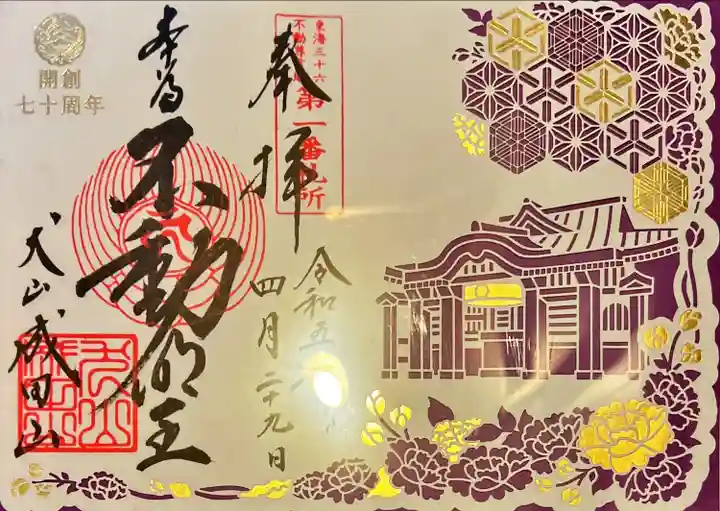 奉拝
東海三十六
不動尊霊場
第一番札所
令和五年
四月二十九日
本尊
不動明王
犬山成田山
開創
七十周年